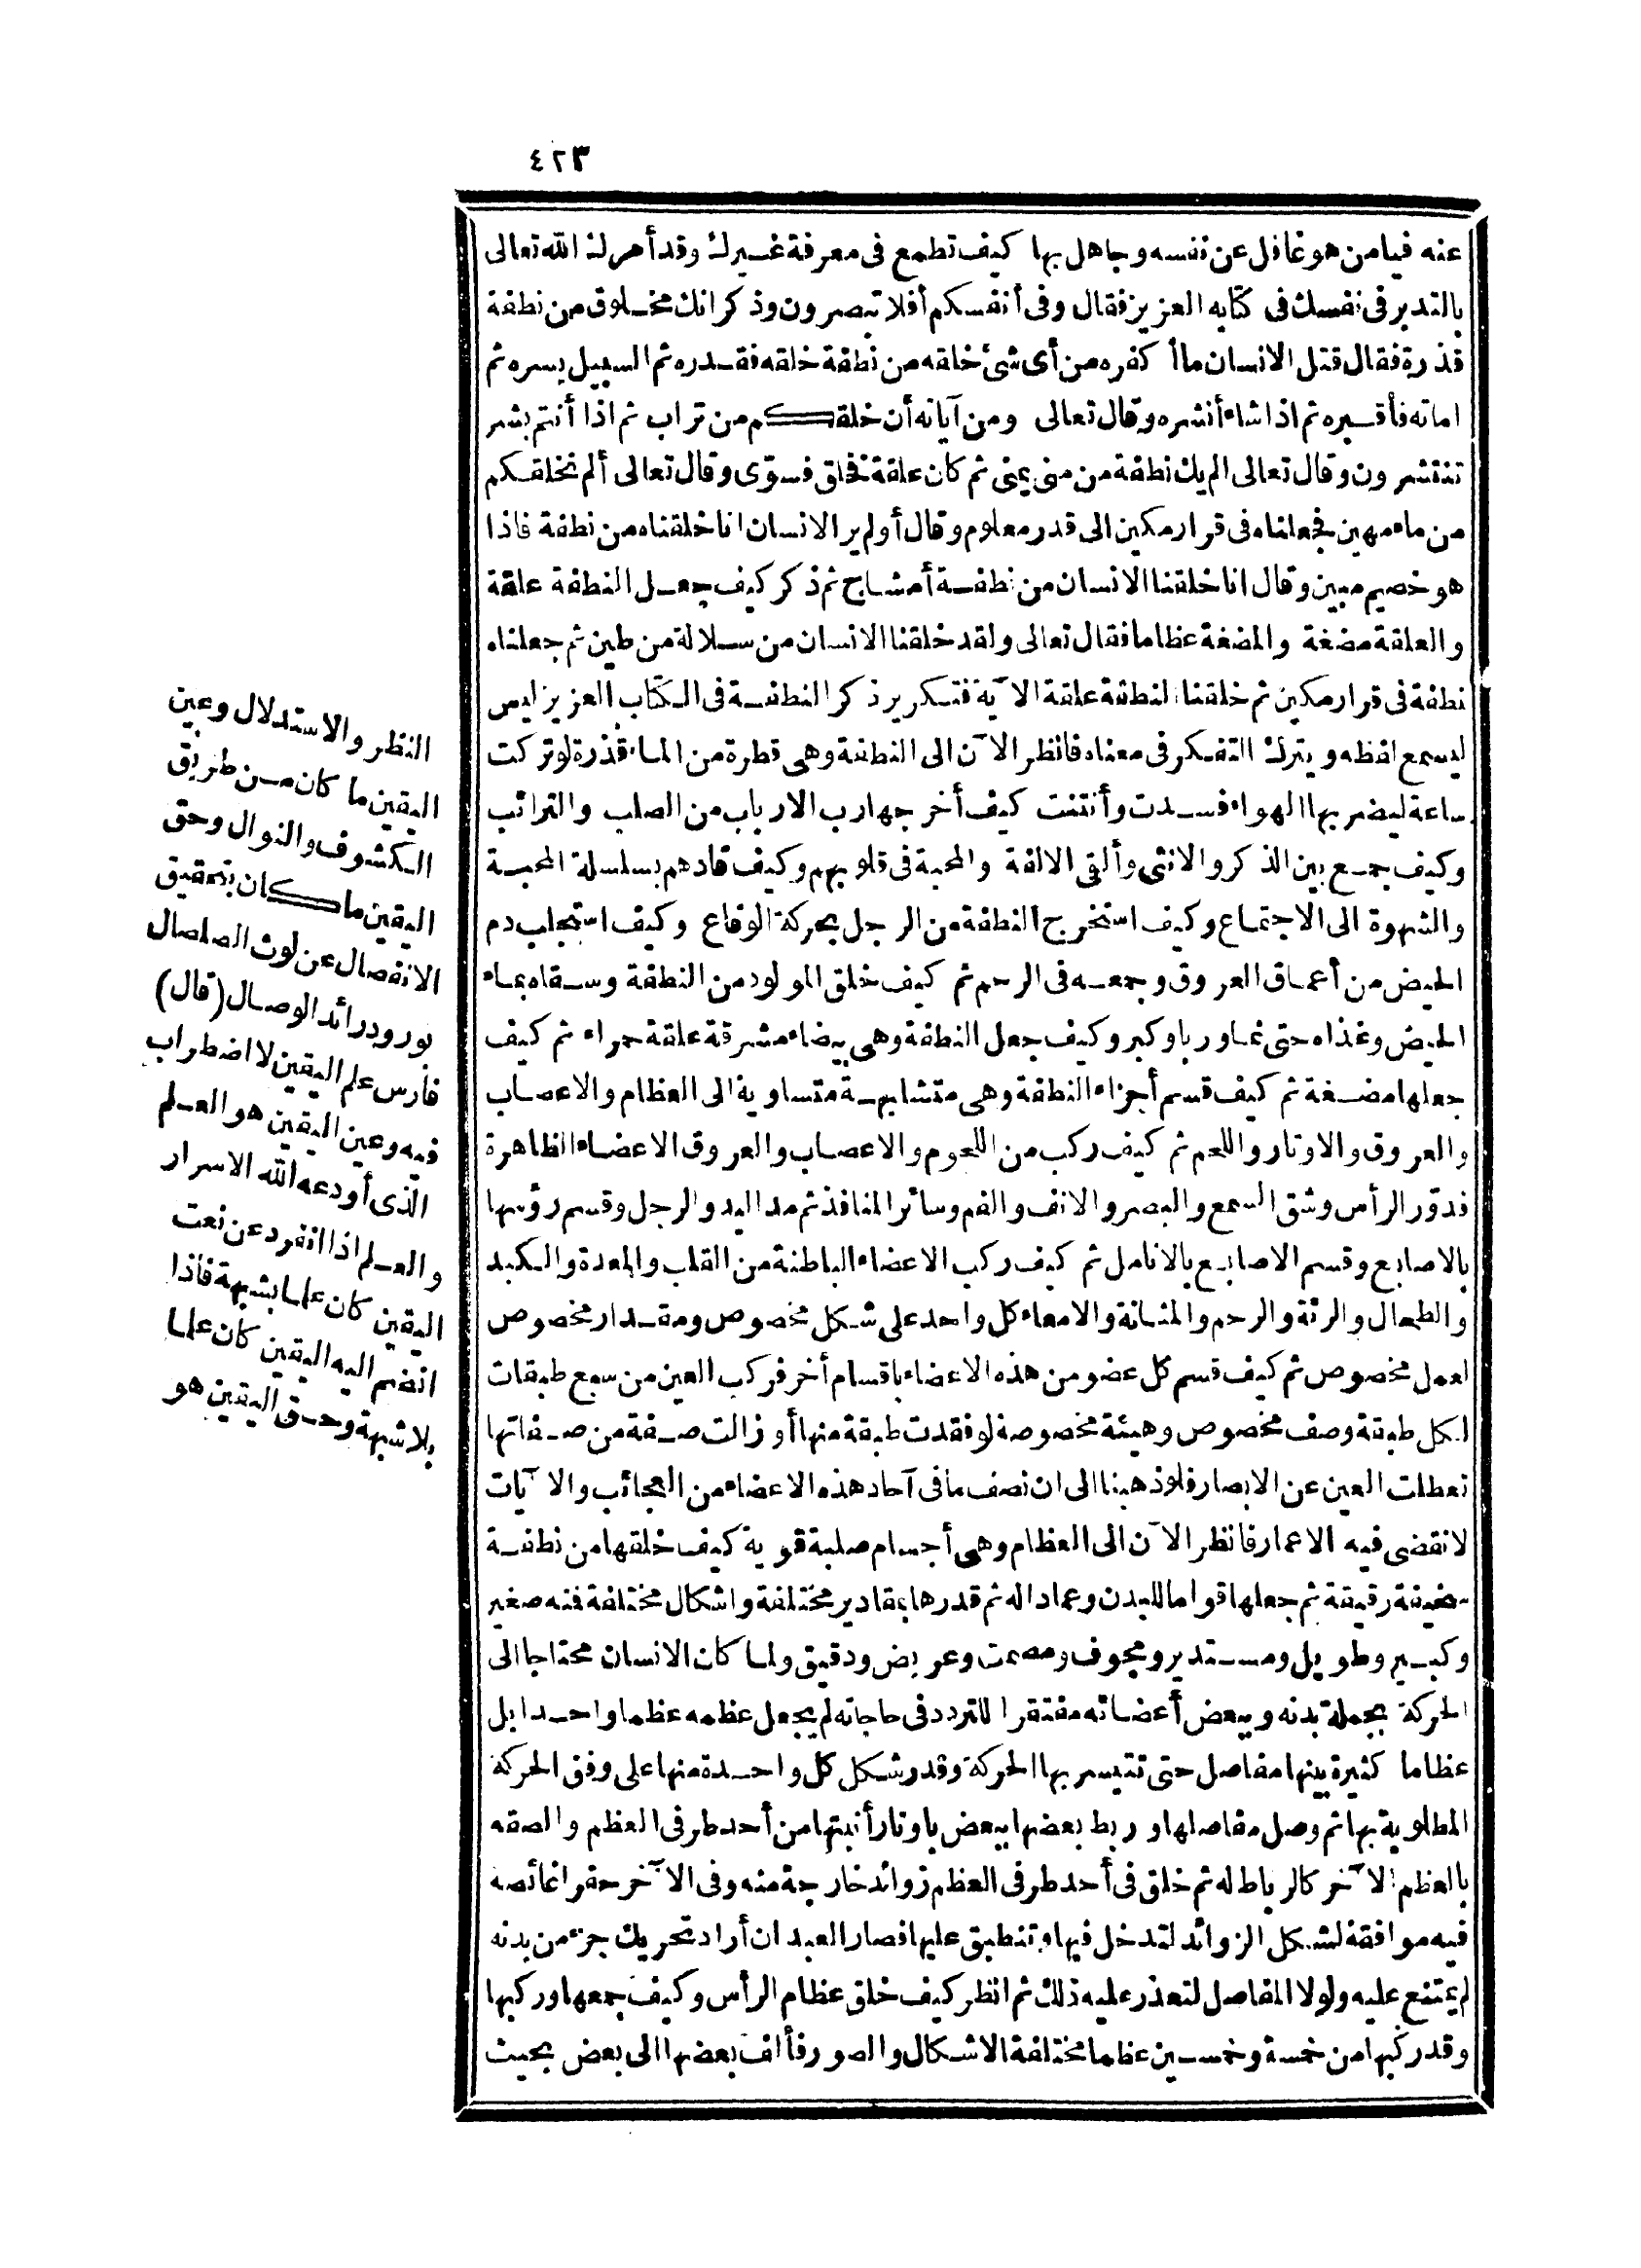 ٤٢٣
عنه فيامن هو غافل عن نفسه وجاهل بها كيف تطمع فى معرفة غيرك وقد أمرك الله تعالى
بالتدبر فى نفسك فى كتابه العزيز فقال وفى أنفسكم أفلا تبصرون وذكر انك مخلوق من نطفة
قذرة فقال قتل الانسان ما أكفره من أى شئ خلقه من نطفة خلقه فقدره ثم السبيل يسره ثم
اماته فأقبره ثم اذا شاء أنشره وقال تعالى ومن آياته أن خلقكم من تراب ثم اذا أنتم بشر
تنتشرون وقال تعالى الم يك نطفة من منى يمنى ثم كان علقة فخلق فسوّى وقال تعالى ألم نخلقكم
من ماء مهين فجعلناه فى قرار مكين الى قدر معلوم وقال أولم ير الانسان انا خلقناه من نطفة فاذا
هو خصيم مبين وقال انا خلقنا الانسان من نطفة أمشاج ثم ذكر كيف جعل النطفة علقة
والعلقة مضغة والمضغة عظاما فقال تعالى ولقد خلقنا الانسان من سلالة من طين ثم جعلناه
نطفة فى قرار مكين ثم خلقنا النطفة علقة الآية فتكرير ذكر النطفة فى الكتاب العزيز ليس
ليسمع لفظه ويترك التفكر فى معناه فانظر الآن الى النطفة وهى قطرة من الماء قذرة لو تركت
ساعة ليضربها الهواء فسدت وأنتنت كيف أخرجها رب الارباب من الصلب والترائب
وكيف جمع بين الذكر والانثى وألقى الالفة والمحبة فى قلوبهم وكيف قادهم بسلسلة المحبة
والشهوة الى الاجتماع وكيف استخرج النطفة من الرجل بحركة الوقاع وكيف استجلب دم
الحيض من أعماق العروق وجمعه فى الرحم ثم كيف خلق المولود من النطفة وسقاه بماء
الحيض وغذاه حتى نما وربا وكبر وكيف جعل النطفة وهى بيضاء مشرقة علقة حمراء ثم كيف
جعلها مضغة ثم كيف قسم أجزاء النطفة وهى متشابهة متساوية الى العظام والاعصاب
والعروق والاوتار واللحم ثم كيف ركب من اللحوم والاعصاب والعروق الاعضاء الظاهرة
فدوّر الرأس وشق السمع والبصر والانف والفم وسائر المنافذ ثم مد اليد والرجل وقسم رؤسها
بالاصابع وقسم الاصابع بالانامل ثم كيف ركب الاعضاء الباطنة من القلب والمعدة والكبد
والطحال والرئة والرحم والمثانة والامعاء كل واحد على شكل مخصوص ومقدار مخصوص
لعمل مخصوص ثم كيف قسم كل عضو من هذه الاعضاء باقسام أخر فركب العين من سبع طبقات
لكل طبقة وصف مخصوص وهيئة مخصوصة لو فقدت طبقة منها أو زالت صفة من صفاتها
تعطلت العين عن الابصار فلو ذهبنا الى ان نصف ما فى آحاد هذه الاعضاء من العجائب والآيات
لانقضى فيه الاعمار فانظر الآن الى العظام وهى أجسام صلبة قوية كيف خلقها من نطفة
سخيفة رقيقة ثم جعلها قواما للبدن وعمادا له ثم قدرها بمقادير مختلفة واشكال مختلفة فمنه صغير
وكبير وطويل ومستدير ومجوف ومصمت وعريض ودقيق ولما كان الانسان محتاجا الى
الحركة بجملة بدنه وببعض أعضائه مفتقرا للتردد فى حاجاته لم يجعل عظمه عظما واحدا بل
عظاما كثيرة بينها مفاصل حتى تتيسر بها الحركة وقدر شكل كل واحدة منها على وفق الحركة
المطلوبة بها ثم وصل مفاصلها وربط بعضها ببعض باوتار أنبتها من أحد طرفى العظم والصقه
بالعظم الآخر كالرباط له ثم خلق فى أحد طرفى العظم زوائد خارجة منه وفى الآخر حفرا غائصة
فيه موافقة لشكل الزوائد لتدخل فيها وتنطبق عليها فصار العبد ان أراد تحريك جزء من بدنه
لم يمتنع عليه ولولا المفاصل لتعذر عليه ذلك ثم انظر كيف خلق عظام الرأس وكيف جمعها وركبها
وقد ركبها من خمسة وخمسين عظما مختلفة الاشكال والصور فألف بعضها الى بعض بحيث
النظر والاستدلال وعين
اليقين ما كان من طريق
الكشوف والنوال وحق
اليقين ما كان بتحقيق
الانفصال عن لوث الصلصال
بورود رائد الوصال (قال)
فارس علم اليقين لا اضطراب
فيه وعين اليقين هو العلم
الذى أودعه الله الاسرار
والعلم اذا انفرد عن نعت
اليقين كان علما بشبهة فاذا
انضم اليه اليقين كان علما
بلا شبهة وحق اليقين هو